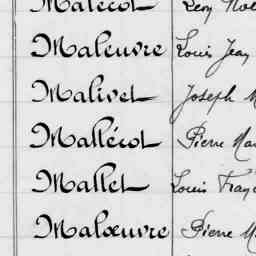 Malécot Léon Noël
Maleuvre Louis Jean
Malivet Joseph
Mallécot Pierre
Mallet Louis
Malœuvre Pierre